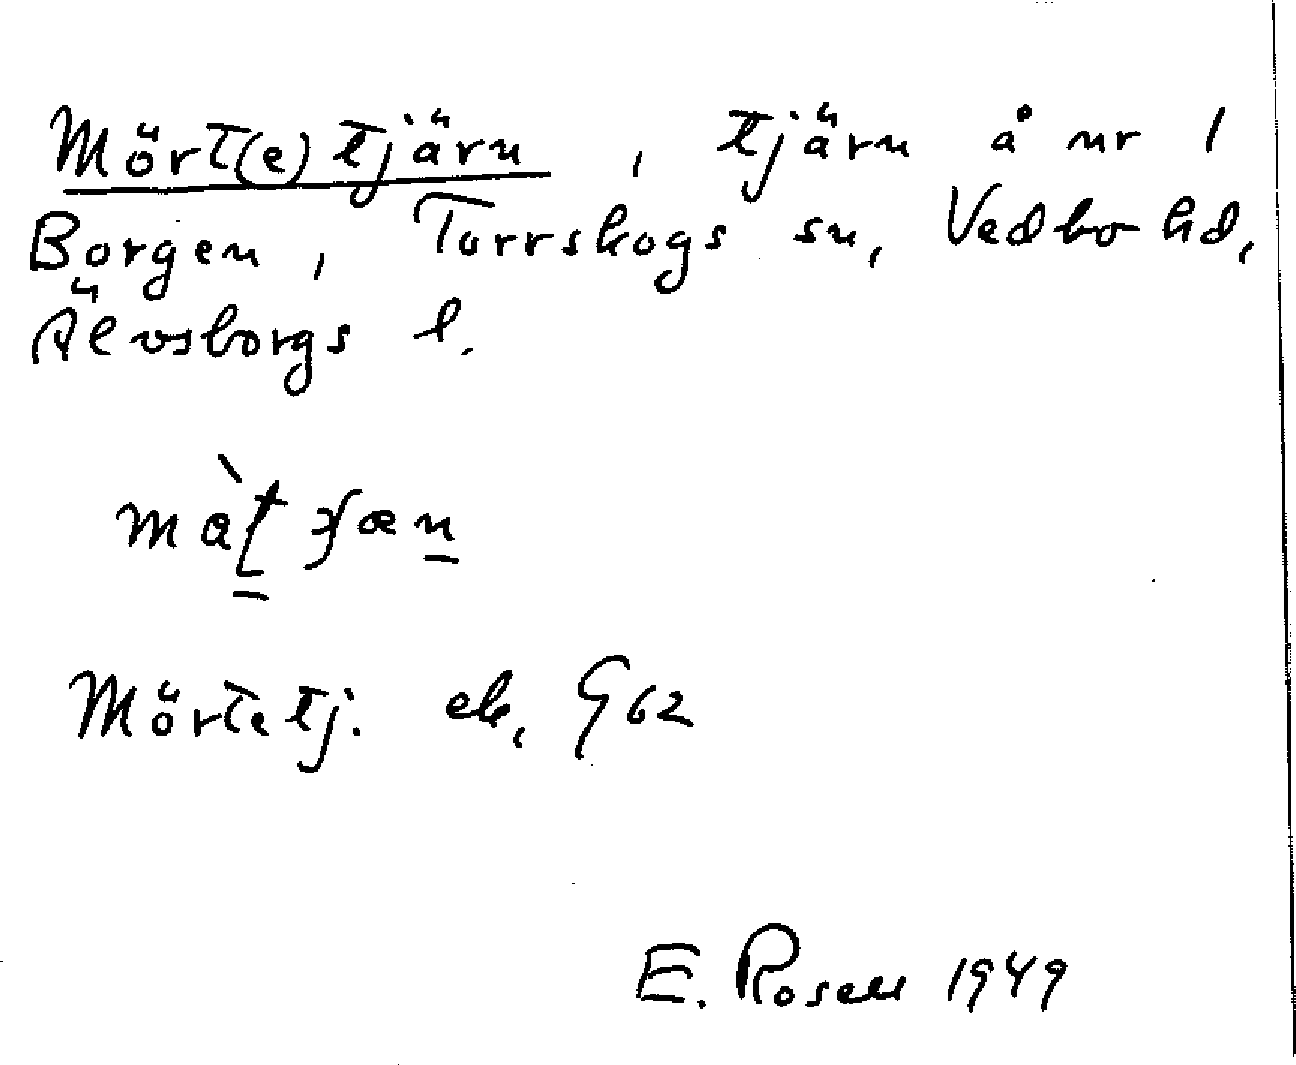 Mört(e)tjärn, tjärn å nr 1
Borgen, Torrskogs sn, Vedbo hd,
Älvsborgs l.
Mörtetj. ek, G 62
E. Rosell 1949